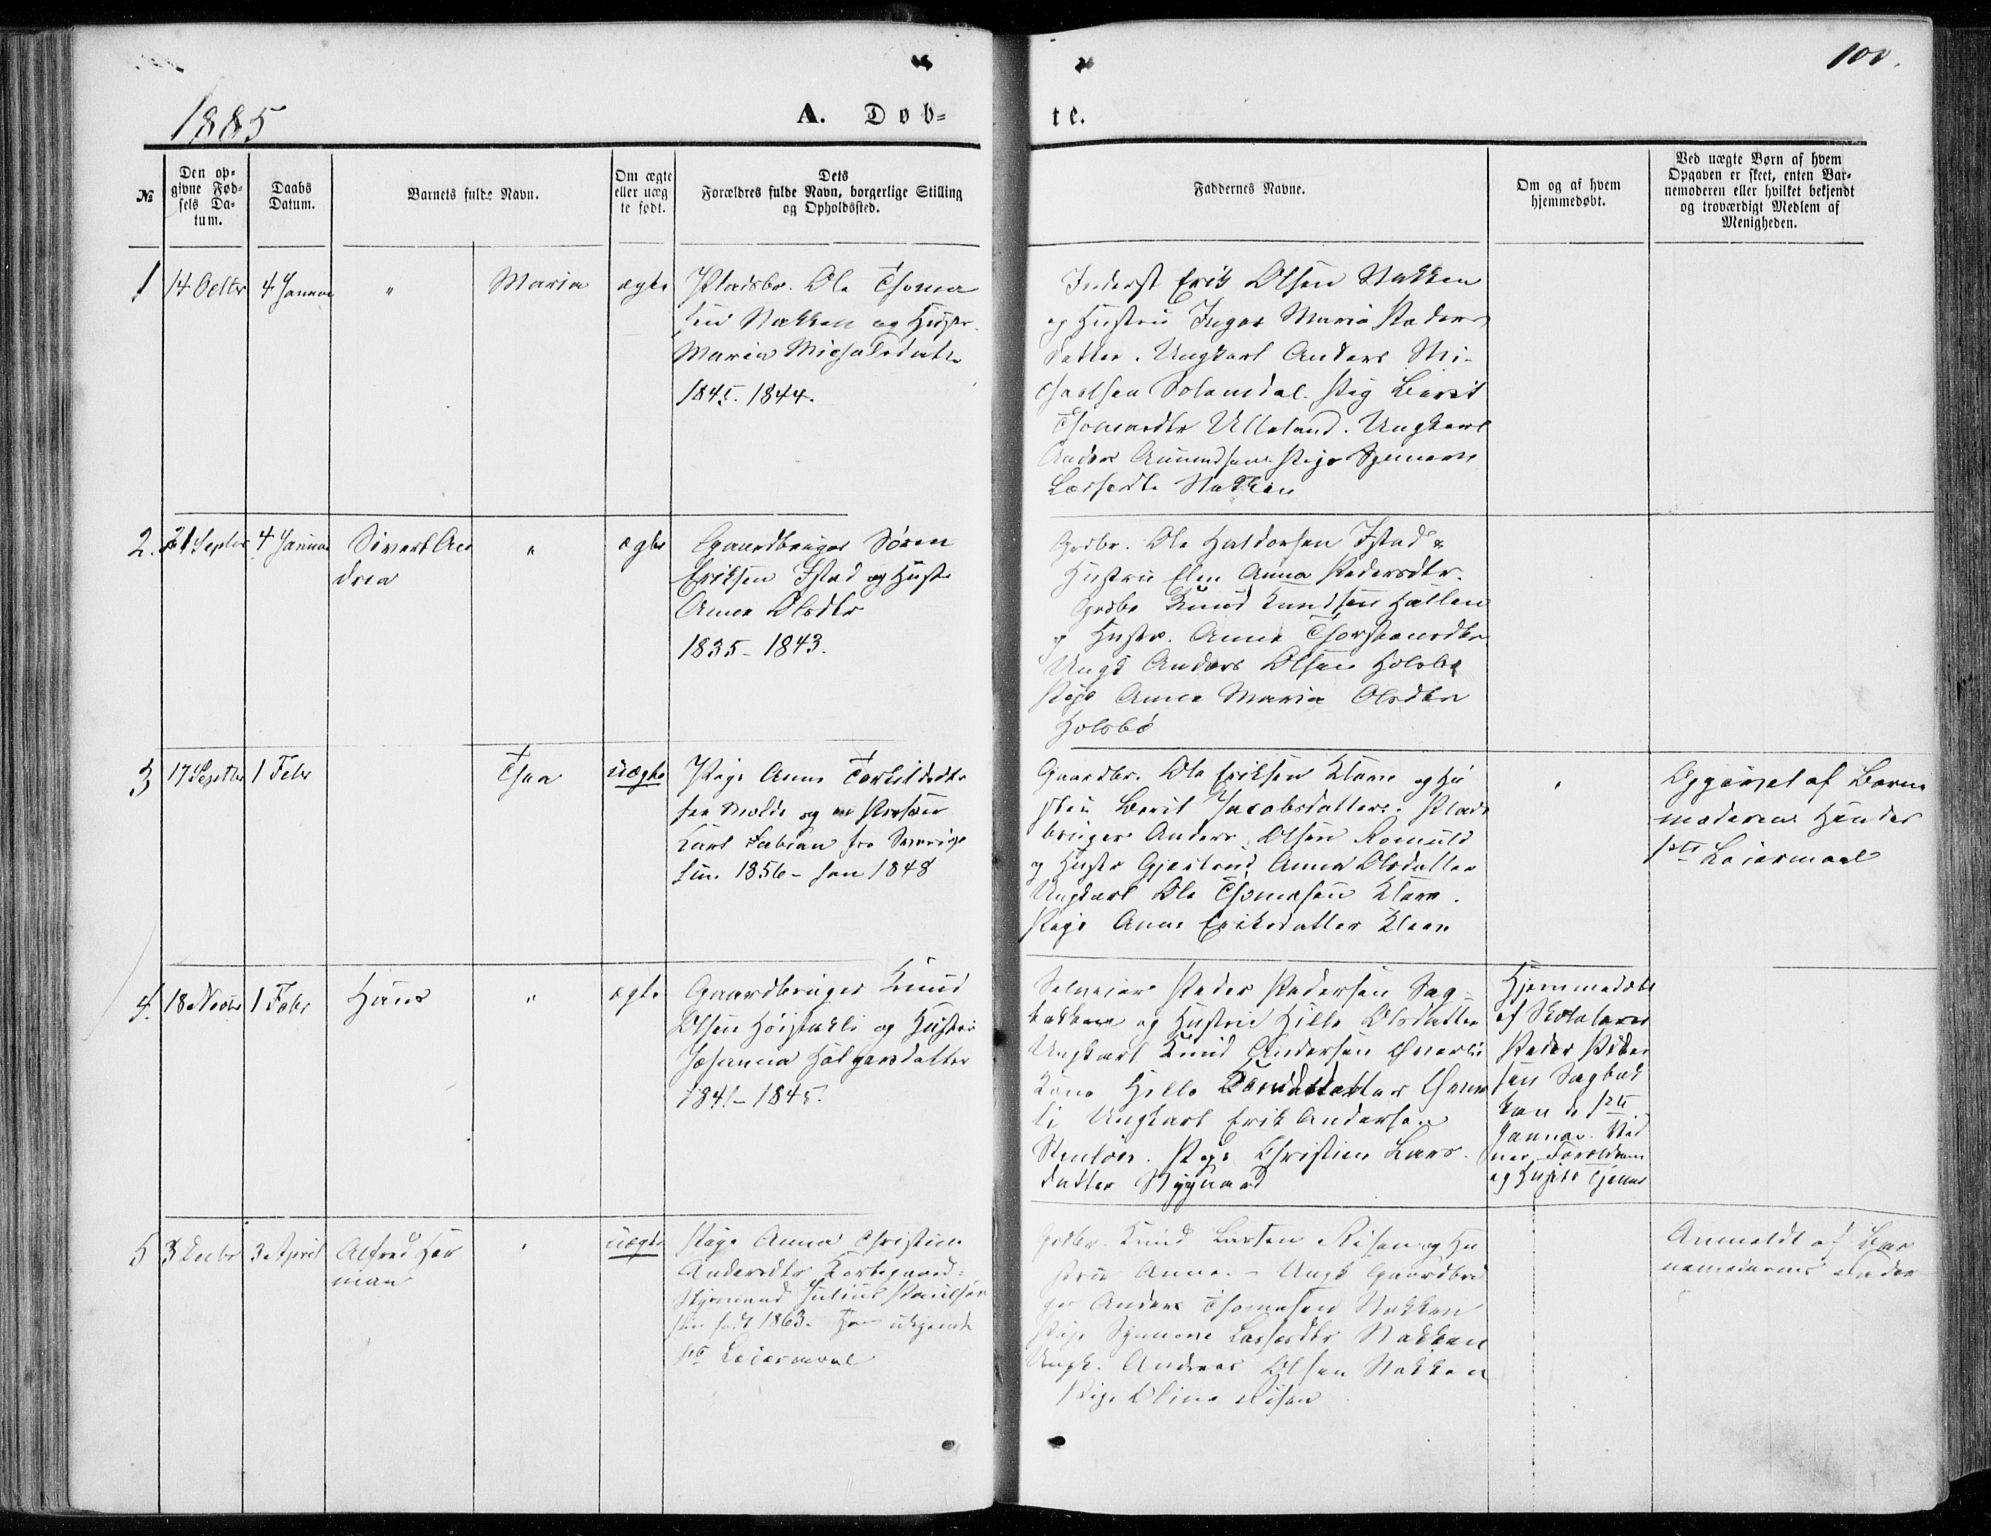 100.
1885
A. Døb=
te.
№
Den op-
givne Fød-
sels Da-
tum.
Daabs
Datum.
Barnets fulde Navn.
Om ægte
eller uæg
te født.
Dets
Forældres fulde Navn, borgerlige Stilling
og Opholdssted.
Faddernes Navne.
Om og af hvem
hjemmedøbt.
Ved uægte Børn af hvem
Opgaven er skeet, enten Bar-
nemoderen eller hvilket bekjendt
og troværdigt Medlem af
Menigheden.
1
14 Octbr
4 Januar
"
Maria
ægte
Pladsbr. Ole Thoma
sen Nakken og Hustr.
Maria Michalsdatter
1845. 1844.
Inderst Erik Olsen Nakken
og Hustru Inger Maria Peders
datter. Ungkarl Anders Mi-
chaelsen Solemdal. Pig Berit
Thomasdtr Ulleland. Ungkarl
Anders Amundsen Pige Synneve
Lassesdtr Nakken
2.
21 Septbr
4 Januar
Sivert An
drea
"
ægte
Gaardbruger Søren
Eriksen Istad og Hustr
Anne Olsdtr
1835 - 1843.
Grdbr. Ole Haldorsen Istad &
Hustru Elen Anna Pedersdtr.
Grdbr Knud Knudsen Hallen
og Hustr. Anne Thorstensdtr
Ungk Anders Olsen Holsbø
Pige Anne Maria Olsdtr
Holsbø
3
17 Septbr
1 Febr
Thea
uægte
Pige Anne
fra Molde og
Karl Fabian fra Sverige
hun 1856 - han 1848
Gaardbr. Ole Eriksen Kleve og Hu
stru Berit Jacobsdatter. Plads
bruger Anders Olsen Romuld
og Hustr Gjertrud Anna Olsdatter
Ungkarl Ole Thomasen Kleve.
Pige Anne Eriksdatter Kleve
Opgivet af Barne
moderen Hendes
1ste Leiermaal
4.
18 Novbr
1 Febr
Hans
"
ægte
Gaardbruger Knud
Olsen Høistakli og Hustru
Johanna Holgersdatter
1841 - 1845.
Selveier Peder Pedersen Sag-
bakken og Hustru Hille Olsdatter
Ungkarl Knud Andersen Øverli
Kone Hille Øver
li Ungkarl Erik Andersen
Stenløs. Pige Christine Lars-
datter Nygaard
Hjemmedøbt
af Skolelærer
Peder Peder
sen Sagbak
ken d 1ste
Januar.
Forældrene
5
3 Decbr
3 April
Alfred Her
man
uægte
Pige Anna Christine
Andersdtr
Julius Paulsen
født 1863.
1ste Leiermaal
Grdbr. Knud Larsen Risan og Hu
stru Anne. - Ungk Gaardbru
ger Anders Thomasen Nakken
Pige Synneve Lassesdtr Nakken
Ungk. Andreas Olsen Nakken
Pige Oline Risan
Anmeldt af Bar
nemoderens Fader